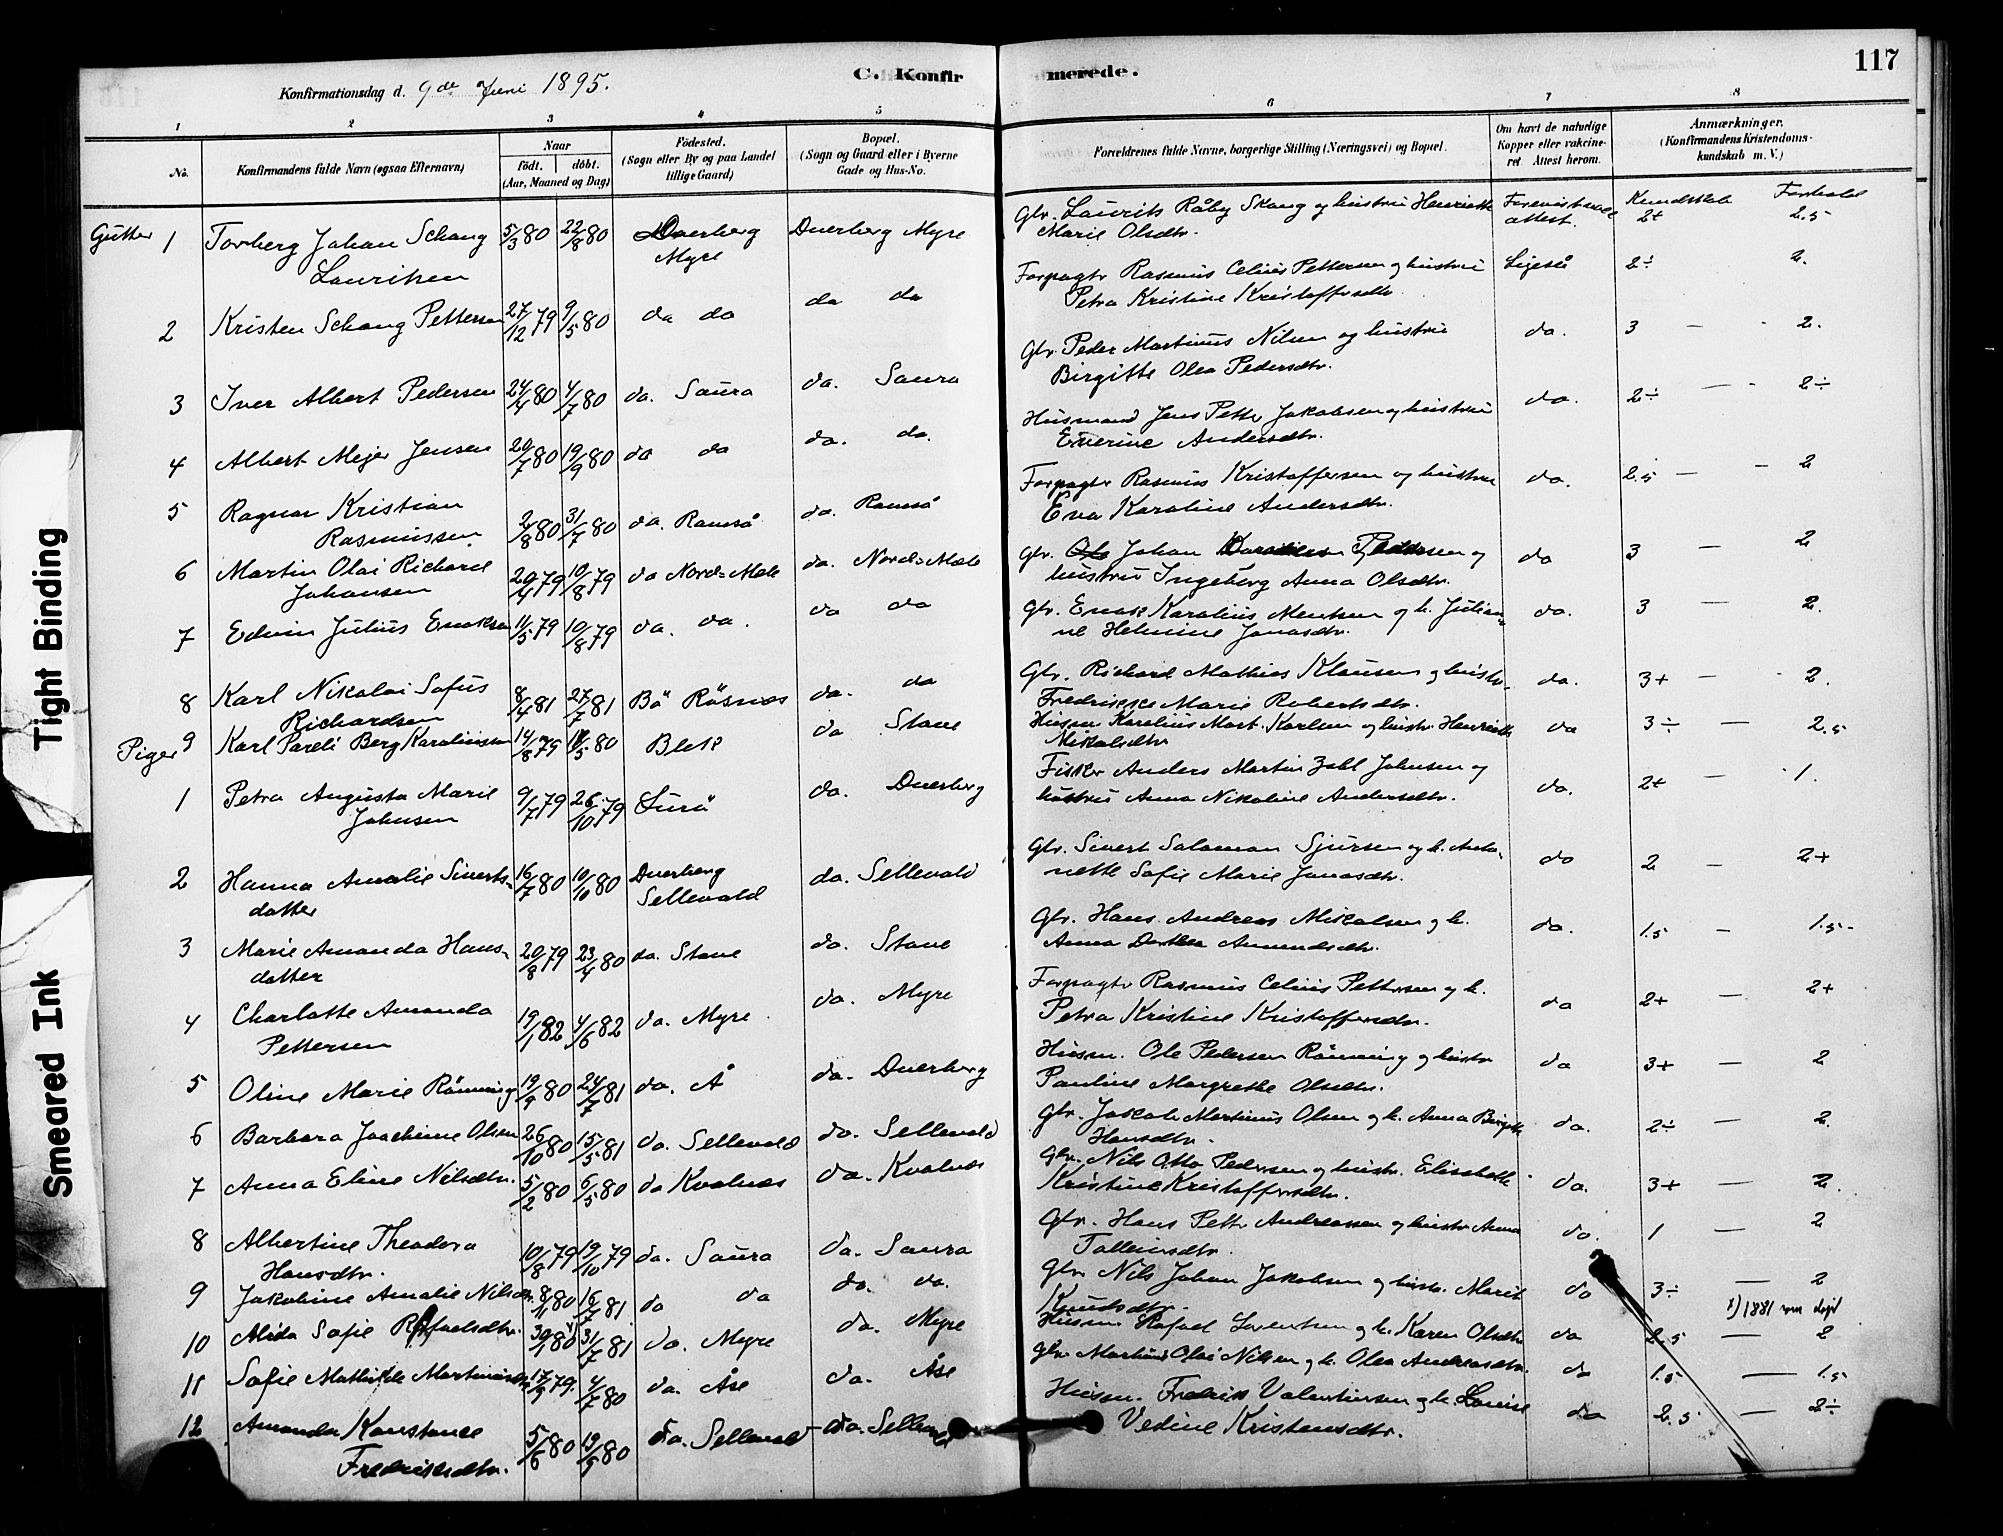 117
C. Konfirmerede.
Konfirmationsdag d. 9de Juni 1895.
1 2 3 4 5 6 7 8
No.
Konfirmandens fulde Navn (ogsaa Efternavn)
Naar födt. döbt. (Aar, Maaned og Dag)
Födested. (Sogn eller By og paa Landet tillige Gaard)
Bopæl. (Sogn og Gaard eller i Byerne Gade og Hus-No.
Forældrenes fulde Navne, borgerlige Stilling (Næringsvei) og Bopæl.
Om havt de naturlige Kopper eller vakcineret. Attest herom.
Anmærkninger. (Konfirmandens Kristendomskundskab m. V.)
Kundskab Forhold
Gutter 1 Torberg Johan Schang Lauritsen 5/3 80 22/8 80 Dverberg Myre Dverberg Myre Gbr. Laurits Råby Skang og hustru Henriette Marie Olsdtr. Forevist vac. attest. 2+ 2.5
2 Kristen Schang Pettersen 27/12 79 9/5 80 da da da da Forpagtr Rasmus Celius Pettersen og hustru Petra Kristine Kristoffersdtr Ligeså 2÷ 2.
3 Iver Albert Pedersen 24/4 80 4/7 80 da. Saura da. Saura Gbr. Peder Martinus Nilsen og hustru Birgitte Olea Pedersdtr. da. 3 — 2.
4 Albert Mejer Jensen 20/7 80 19/9 80 da da da. da. Husmand Jens Petter Jakobsen og hustru Enerine Andersdtr. da. 2÷ — 2÷
5 Ragnar Kristian Rasmussen 2/8 80 31/7 80 da. Ramså da. Ramså Forpagtr Rasmus Kristoffersen og hustru Eva Karoline Andersdtr. da. 2.5 — 2
6 Martin Olai Richard Johansen 20/4 79 10/8 79 da Nord-Mele da. Nord-Mele Gbr. Johan Pedersen og hustru Ingeborg Anna Olsdtr. da 3 — 2
7 Edvin Julius Enoksen 11/5 79 10/8 79 da. da. da da Gbr. Enok Karolius Mentsen og h. Julianne Helmine Jonasdtr. da. 3 — 2.
8 Karl Nikolai Sofus Richardsen 8/4 81 27/7 81 Bö Rösnæs da. da Gbr. Richard Mathias Klausen og hustr. Fredrikke Marie Robertsdtr. da. 3+ — 2.
9 Karl Pareli Berg Karoliussen 14/8 79 /5 80 Blek da Stave Husm. Karelius Mart. Karlsen og hustr. Henriette Mikalsdtr da 3÷ — 2.5
Piger
1 Petra Augusta Marie Johnsen 9/7 79 26/10 79 Lurö da. Dverberg Fisker Anders Martin Zahl Johnsen og hustru Anna Nikoline Andersdtr. da. 2+ — 1.
2 Hanna Amalie Sivertsdatter 16/7 80 10/10 80 Dverberg Sellevold da. Sellevold Gbr. Sivert Salamon Sjursen og h. Antonette Sofie Marie Jonasdtr. da 2 — 2+
3 Marie Amanda Hansdatter 20/8 79 23/4 80 da. Stave da. Stave Gbr. Hans Andreas Mikalsen og h. Anna Dorthea Amundsdtr. da. 1.5 — 1.5-
4 Charlotte Amanda Pettersen 19/1 82 4/6 82 da. Myre da. Myre Forpagtr Rasmus Celius Pettersen og h. Petra Kristine Kristoffersdtr. da 2+ — 2+
5 Oline Marie Rönning 19/9 80 24/7 81 da. Å da. Dverberg Husm. Ole Pedersen Rönning og hustr Pauline Margrethe Olsdtr. da 3+ — 2
6 Barbara Joachime Olsen 26/10 80 15/5 81 da. Sellevold da. Sellevold Gbr. Jakob Martinus Olsen og h. Anna Birgitte Hansdtr. da. 2÷ — 2.
7 Anna Eline Nilsdtr. 5/2 80 6/5 80 da Kvalnæs da. Kvalnæs Gbr. Nils Otto Pedersen og hustr. Elisabeth Kristine Kristoffersdtr. da. 3+ — 2.
8 Albertine Theodora Hansdtr. 10/8 79 19/10 79 da. Saura da. Saura Gbr. Hans Pettr Andreassen og hustr Anna Tolleivsdtr. da. 1 — 2
9 Jakobine Amalie Nilsdtr. 8/1 80 16/7 81 da da da. da. Gbr Nils Johan Jakobsen og hustr. Marit Knudsdtr. da 3÷ — 2
x) 1881
10 Alida Sofie Rafaelsdtr. 30/1 80 x) 31/7 81 da. Myre da. Myre Husm Rafael Lorentsen og h. Karen Olsdtr da 2.5 — 2
11 Sofie Mathilde Martinusdtr 17/9 79. 4/7 80 da. Åse da. Åse Gbr Martinus Olai Nilsen og h. Olea Andreasdtr. da 1.5 — 1.5
12 Amanda Konstanse Fredriksdtr. 5/6 80 19/9 80 da. Sellevold da. Sellevold Husm. Fredrik Valentinsen og h. Lovise Vedine Kristensdtr. da 2.5 — 2÷
Tight Binding
Smeared Ink